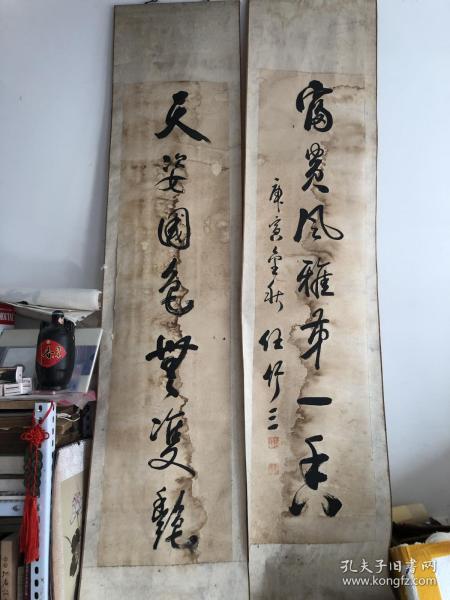 天姿國色無雙艷
富貴風雅第一香
庚寅金秋 任竹三
孔夫子旧书网
www.kongfz.com